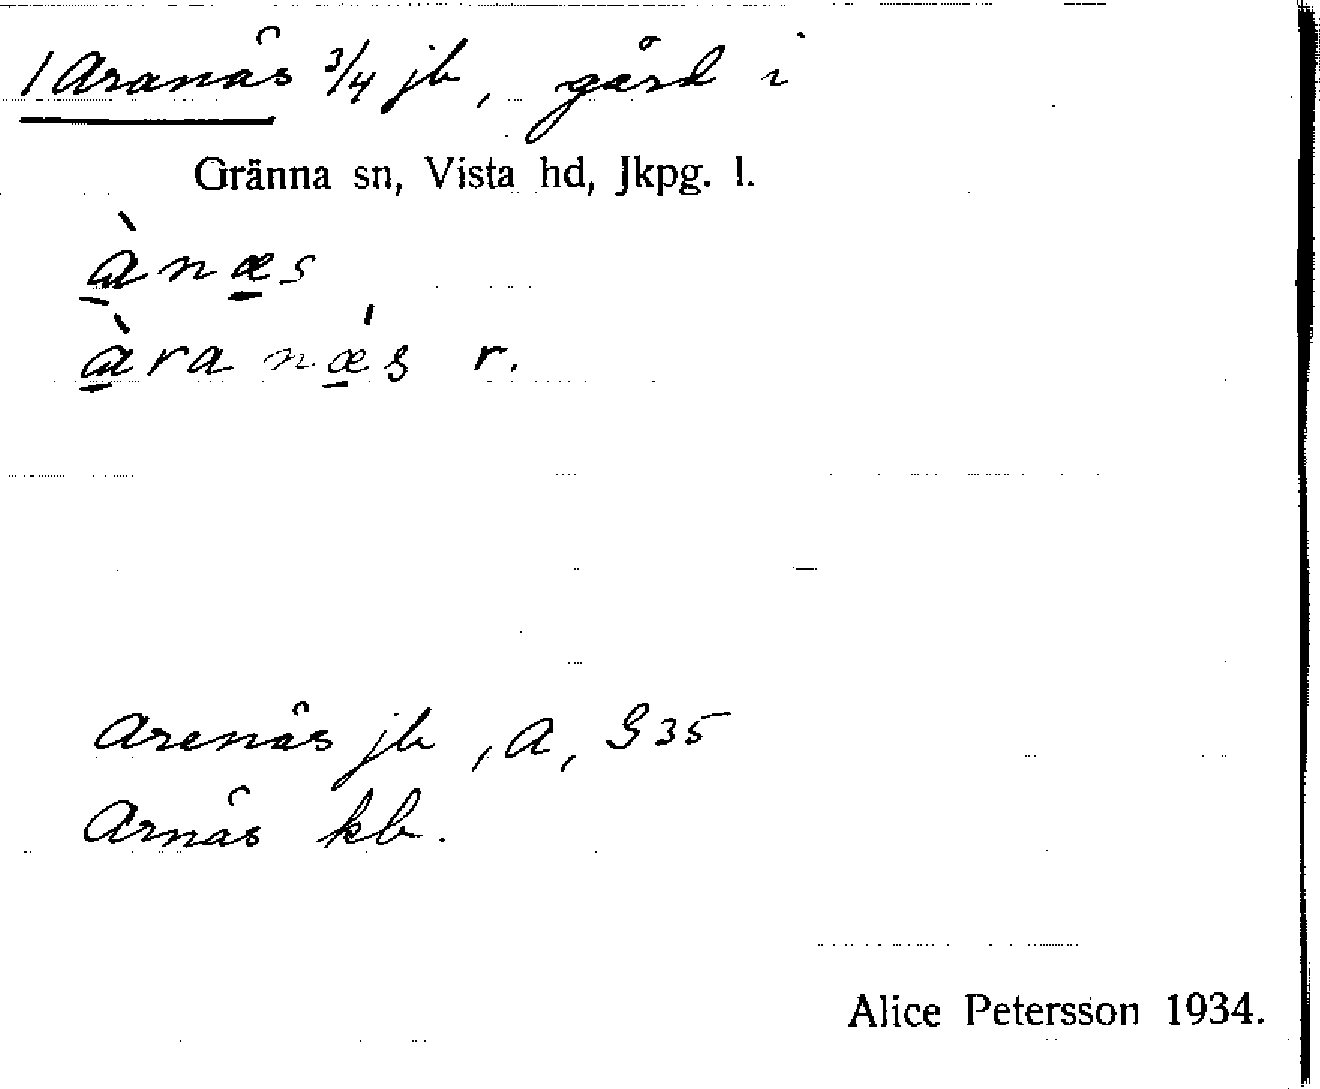 1 Aranäs 3/4 jb, gård i
Gränna sn, Vista hd, Jkpg. l.
ànæs
àranǽs r.
Arenäs jb, A, G 35
Arnäs kb.
Alice Petersson 1934.